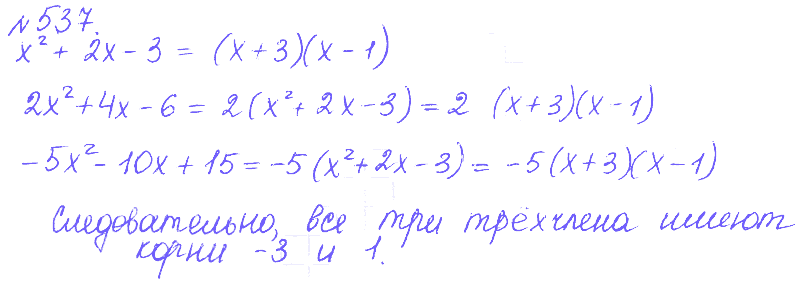 №537.
x² + 2x - 3 = (x+3)(x-1)
2x²+4x-6 = 2(x²+2x-3) = 2 (x+3)(x-1)
-5x²-10x+15 = -5(x²+2x-3) = -5(x+3)(x-1)
Следовательно, все три трёхчлена имеют
корни -3 и 1.